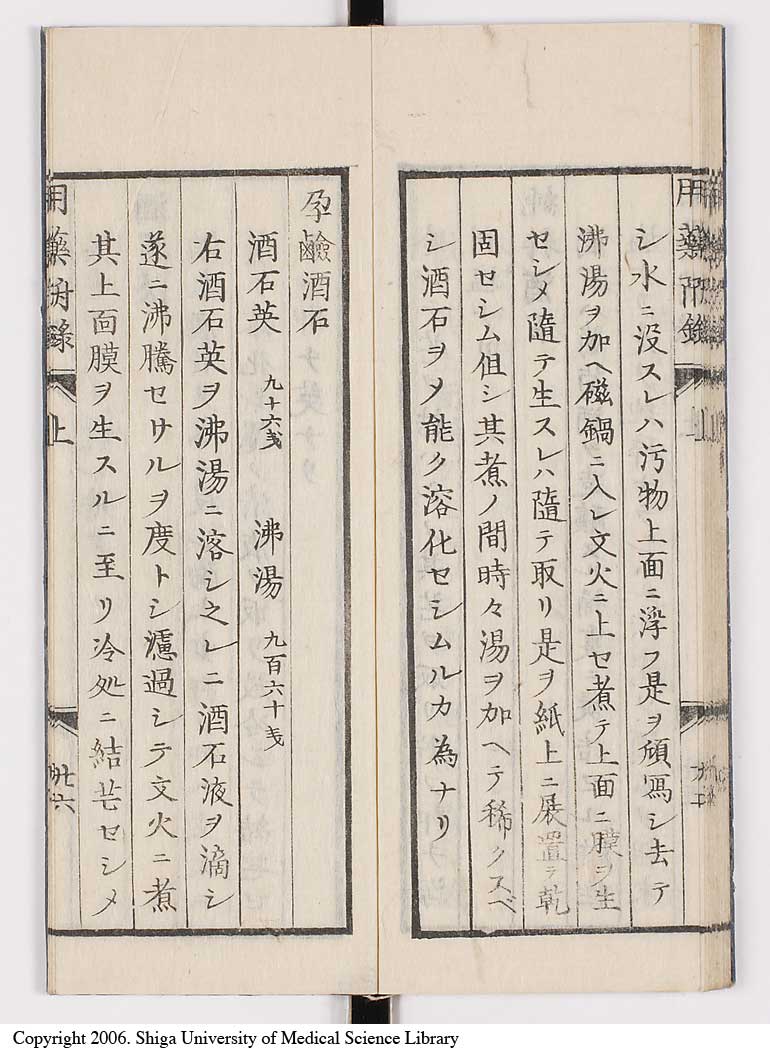 シ水ニ没スレハ汚物上面ニ浮フ是ヲ傾寫シ去テ
沸湯ヲ加ヘ磁鍋ニ入レ文火ニ上セ煮テ上面ニ膜ヲ生
セシメ隨テ生スレハ隨テ取リ是ヲ紙上ニ展置テ乾
固セシム但シ其煮ノ間時々湯ヲ加ヘテ稀クスベ
シ酒石ヲメ能ク溶化セシムルカ為ナリ
孕鹼酒石
酒石英 九十六戔 沸湯 九百六十戔
右酒石英ヲ沸湯ニ溶シ之レニ酒石液ヲ滴シ
遂ニ沸騰セサルヲ度トシ濾過シテ文火ニ煮
其上面膜ヲ生スルニ至リ冷処ニ結芒セシメ
用藥 上 廿六
Copyright 2006. Shiga University of Medical Science Library